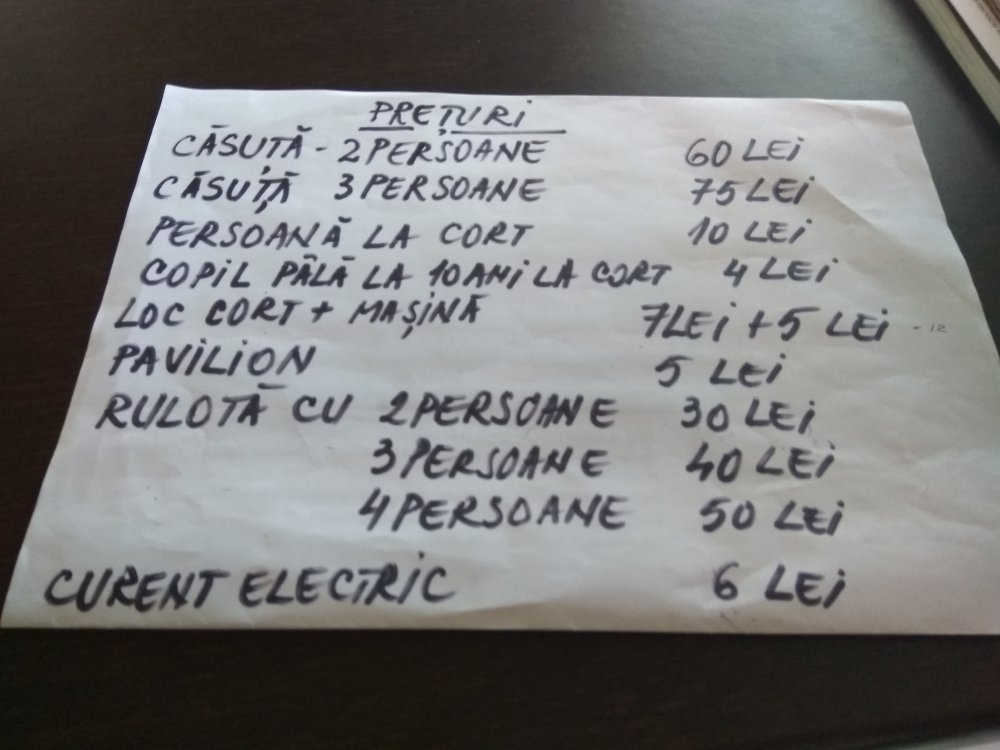 PREȚURI
CĂSUȚĂ - 2 PERSOANE 60 LEI
CĂSUȚĂ 3 PERSOANE 75 LEI
PERSOANĂ LA CORT 10 LEI
COPIL PÂLĂ LA 10 ANI LA CORT 4 LEI
LOC CORT + MAȘINĂ 7 LEI + 5 LEI - 12
PAVILION 5 LEI
RULOTĂ CU 2 PERSOANE 30 LEI
3 PERSOANE 40 LEI
4 PERSOANE 50 LEI
CURENT ELECTRIC 6 LEI